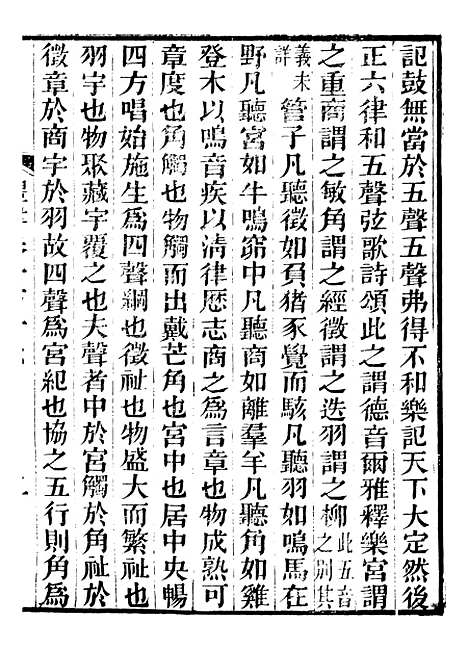 記鼓無當於五聲五聲弗得不和樂記天下大定然後
正六律和五聲弦歌詩頌此之謂德音爾雅釋樂宮謂
之重商謂之敏角謂之經徵謂之迭羽謂之柳此五音之別其
義未詳管子凡聽徵如負猪豕覺而駭凡聽羽如鳴馬在
野凡聽宮如牛鳴窌中凡聽商如離羣羊凡聽角如雞
登木以鳴音疾以清律厯志商之爲言章也物成熟可
章度也角觸也物觸而出戴芒角也宮中也居中央暢
四方唱始施生爲四聲綱也徵祉也物盛大而繁祉也
羽宇也物聚藏宇覆之也夫聲者中於宮觸於角祉於
徵章於商宇於羽故四聲爲宮紀也協之五行則角爲